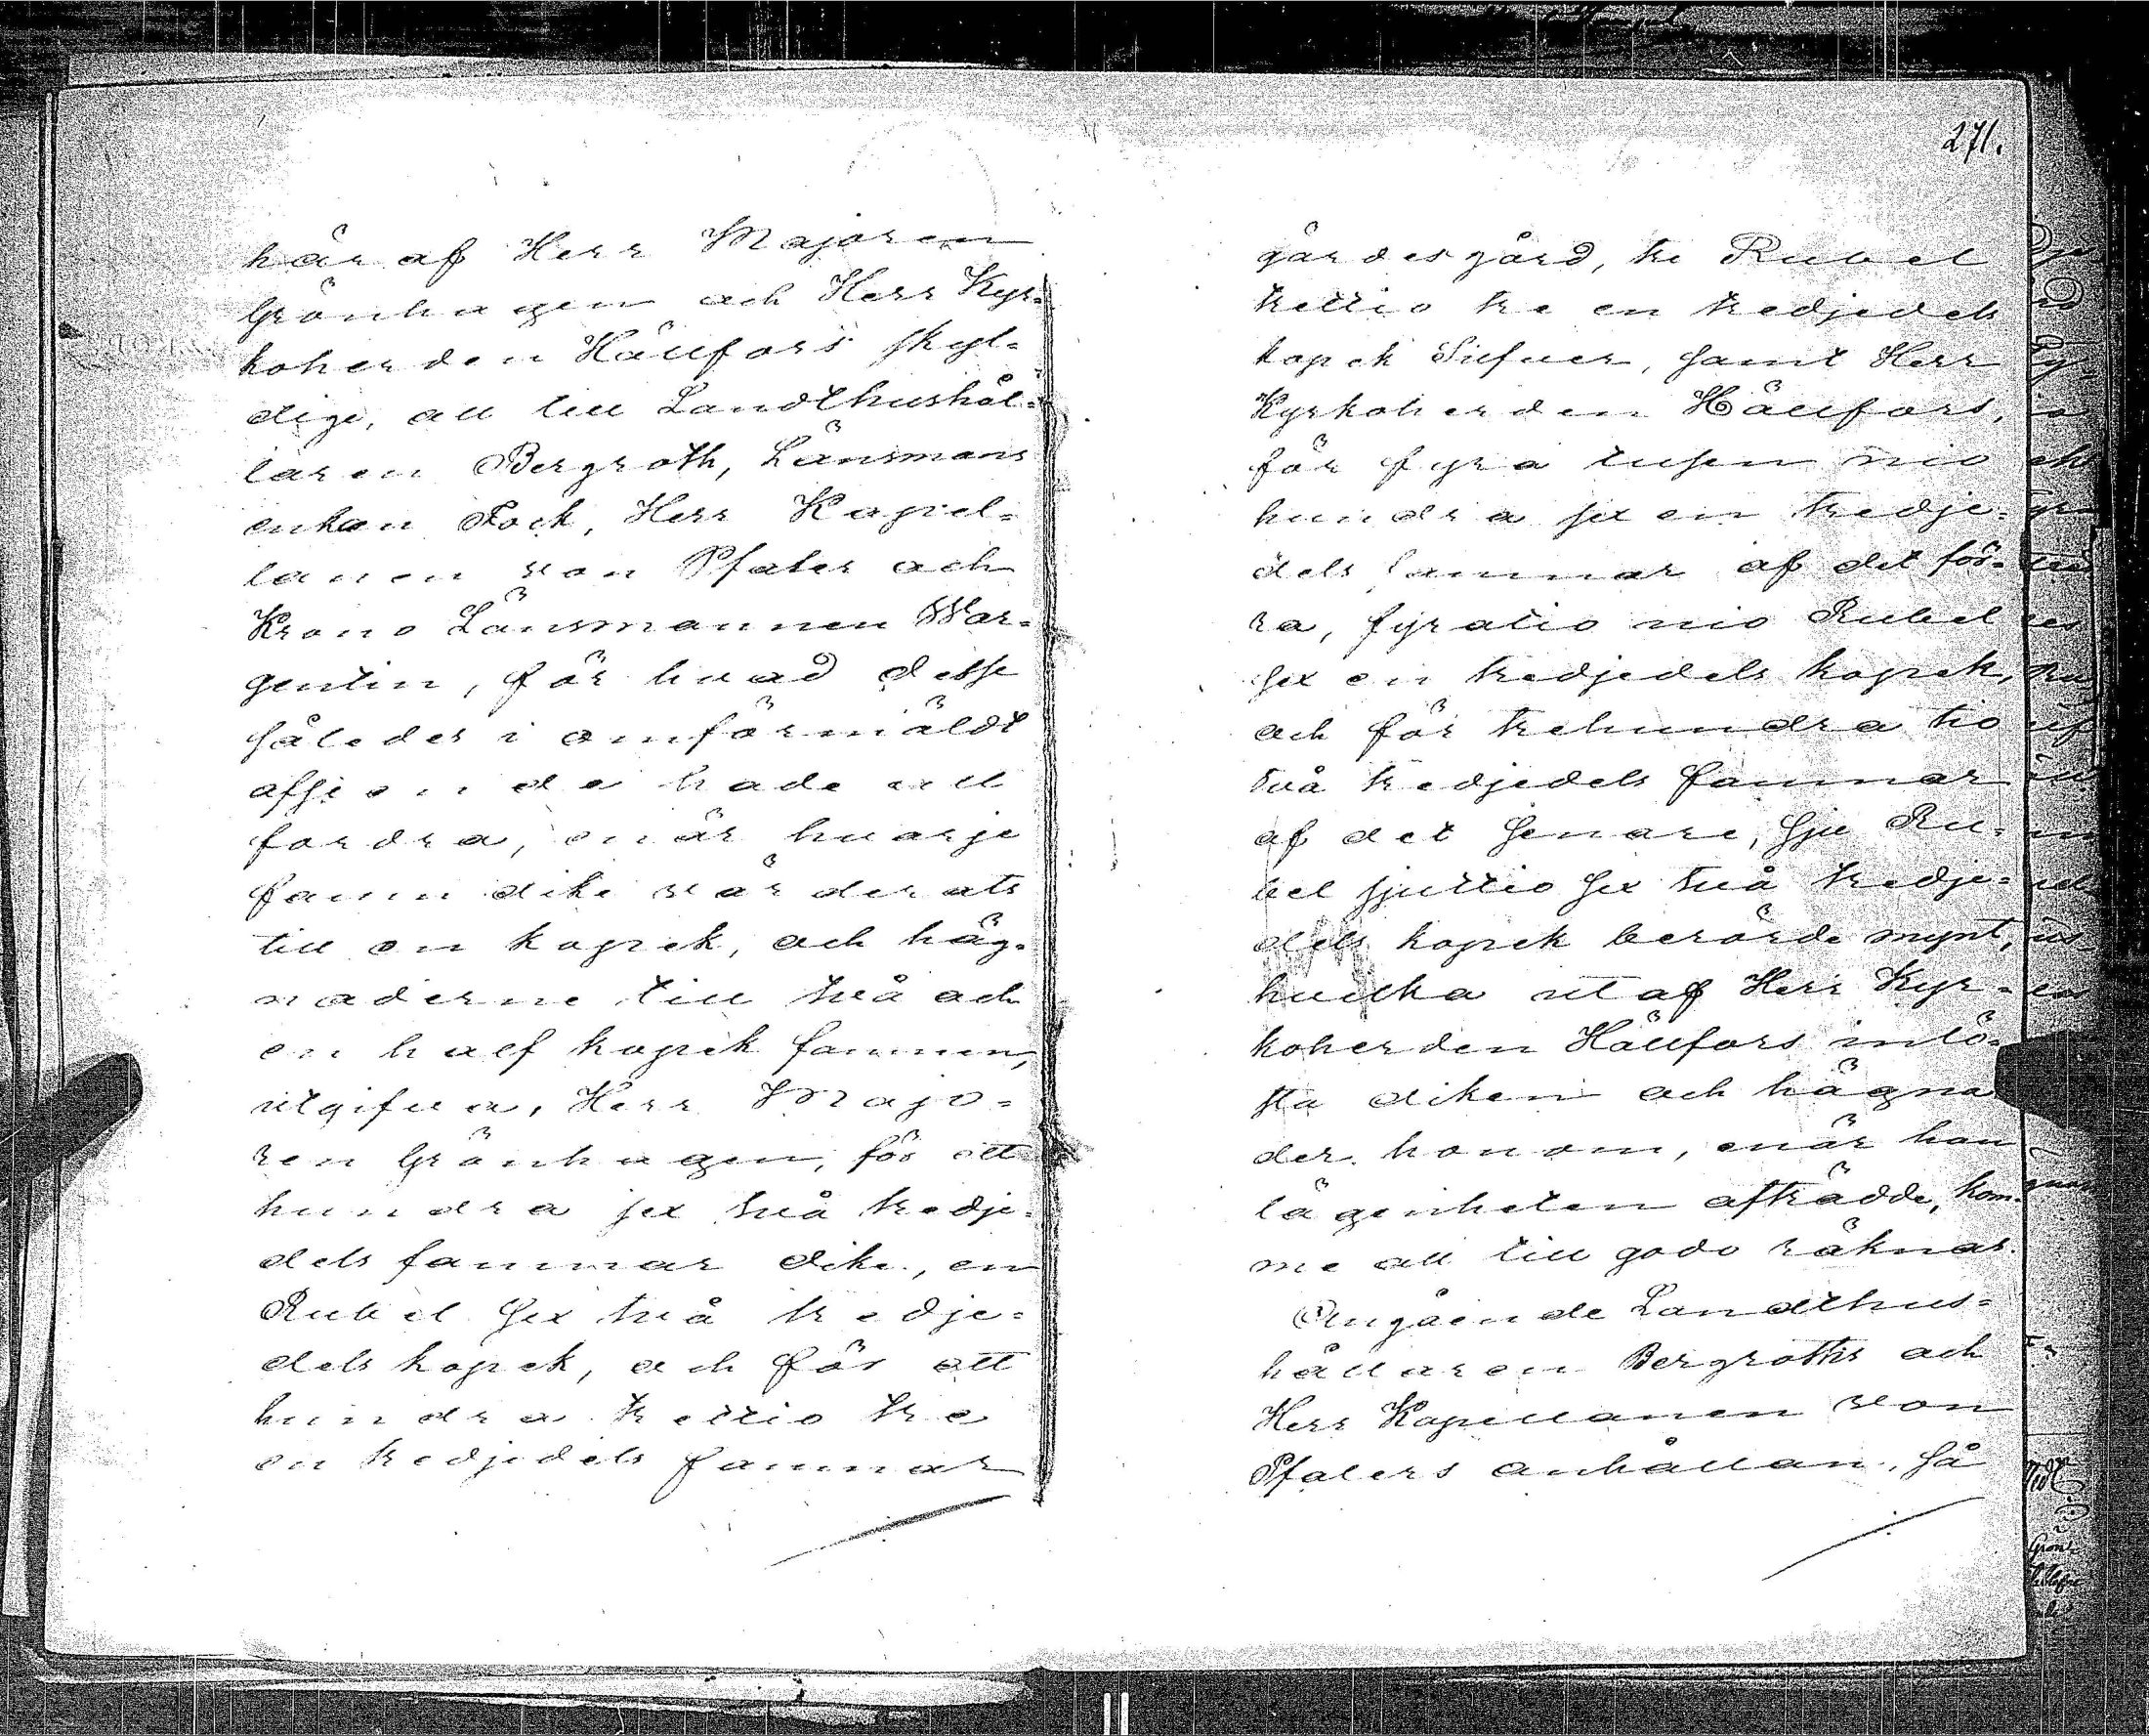 här af Herr Majoren
Grönhagen och Herr Kyr=
koherden Hällfors skyl=
dige, att till Landthushål=
laren Bergroth, Länsmans
enkan Fock, Herr Kapel=
lanen von Pfaler och
Krono Länsmannen War=
gentin, för hvad desse
således i omförmäldt
afseende hade att
fordra, enär hvarje
famn dike värderats
till en kopek, och häg=
naderne till två och
en half kopek famnen,
utgifva, Herr Majo=
ren Grönhagen, för ett
hundra sex två tredje=
dels famnar dike, en
Rubel sex två tredje=
dels kopek, och för ett
hundra trettio tre
en tredjedels famnar
271.
gärdesgård, tre Rubel
trettio tre en tredjedels
kopek Silfver, samt Herr
Kyrkoherden Hällfors,
för fyra tusen nio
hundra sex en tredje=
dels famnar af det för=
ra, fyratio nio Rubel
sex en tredjedels kopek,
och för trehundra tio
två tredjedels famnar
af det senare, sju Ru=
bel sjuttio sex två tredje=
dels kopek berörde mynt,
hvilka utaf Herr Kyr=
koherden Hällfors inlö=
sta diken och hägna
der honom, enär han
lägenheten afträdde, kom=
me att till godo räknas.
Angående Landthus=
hållaren Bergroths och
Herr Kapellanen von
Pfalers anhållan, så